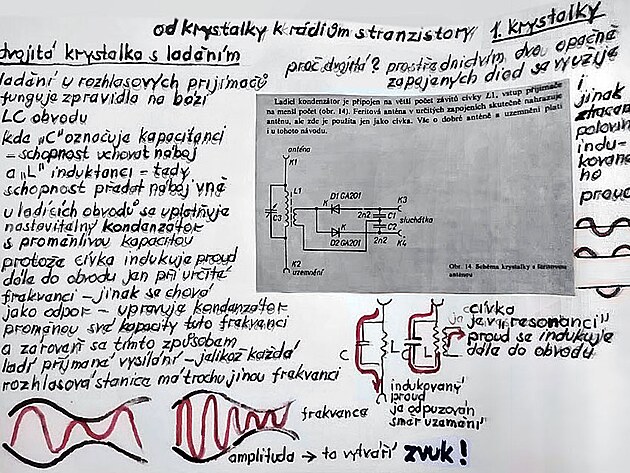 od krystalky k rádiům s tranzistory
1. krystalky
dvojitá krystalka s laděním
proč dvojitá? prostřednictvím dvou opačně
zapojených diod se využije
i
jinak
ztracená
polovina
indu-
kovane
ho
proud
ladění u rozhlasových přijímačů
funguje zpravidla na bázi
LC obvodu
kde "C" označuje kapacitanci
– schopnost uchovat náboj
a „L" induktanci – tedy
schopnost předat náboj vně
u ladících obvodů se uplatňuje
nastavitelný kondenzátor
s proměnlivou kapacitou
protože cívka indukuje proud
dále do obvodu jen při určité
frekvanci – jinak se chová
jako odpor – upravuje kondenzátor
proměnou své kapacity tuto frekvanci
a zároveň se tímto způsobem
ladí přijímané vysílání – jelikož každá
rozhlasová stanice má trochu jinou frekvanci
Ladicí kondenzátor je připojen na větší počet závitů cívky L1, vstup přijímače
na menší počet (obr. 14). Feritová anténa v určitých zapojeních skutečně nahrazuje
anténu, ale zde je použita jen jako cívka. Vše o dobré anténě a uzemnění platí
i u tohoto návodu.
anténa
K1
L1
C3
D1 GA201
K
K3
2n2
C1
sluchátka
C2
K
K
K4
D2 GA201
2n2
K2
uzemnění
Obr. 14. Schéma krystalky s feritovou
anténou
C
L
C
L
cívka
je v „resonanci"
proud se indukuje
dále do obvodu
indukovaný
proud
je odpuzován
směr uzamění
frekvance
amplituda → to vytváří zvuk!